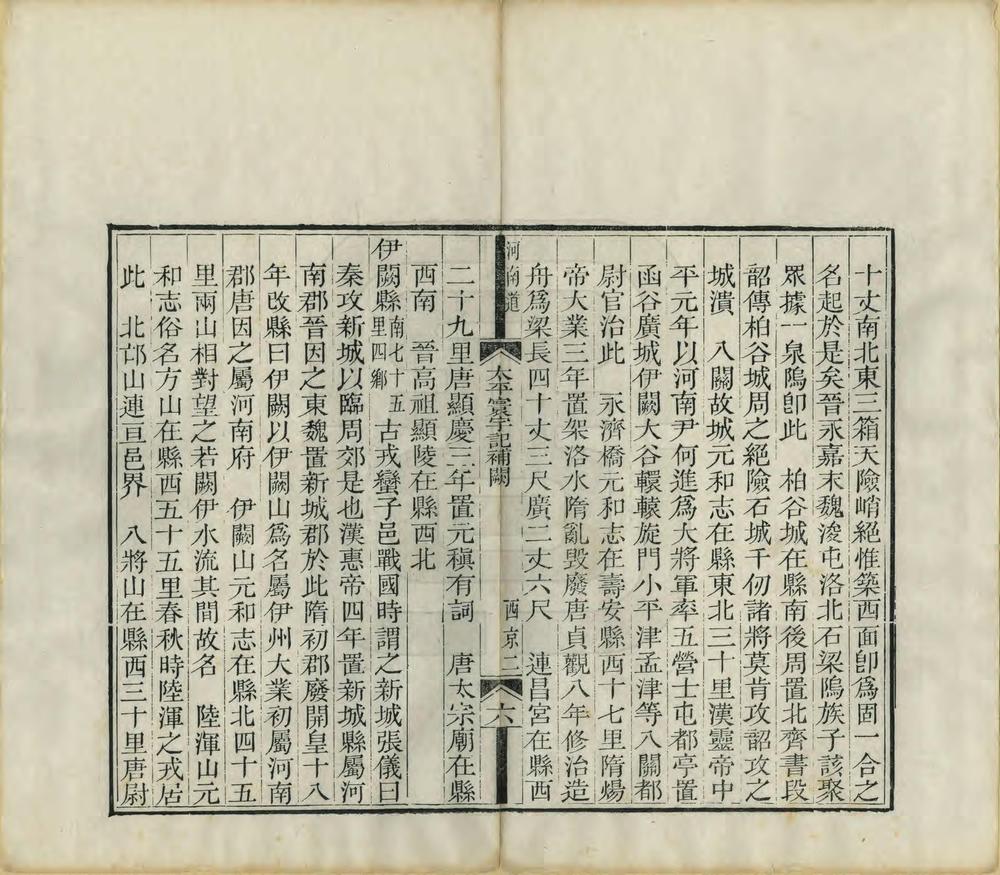 十丈南北東三箱天險峭絕惟築西面卽爲固一合之
名起於是矣晉永嘉末魏浚屯洛北石梁塢族子該聚
眾據一泉塢卽此　柏谷城在縣南後周置北齊書段
韶傳柏谷城周之絕險石城千仞諸將莫肯攻韶攻之
城潰　入關故城元和志在縣東北三十里漢靈帝中
平元年以河南尹何進爲大將軍率五營士屯都亭置
函谷廣城伊闕大谷轘轅旋門小平津孟津等八關都
尉官治此　永濟橋元和志在壽安縣西十七里隋煬
帝大業三年置架洛水隋亂毀廢唐貞觀八年修治造
舟爲梁長四十丈三尺廣二丈六尺　連昌宮在縣西
河南道　太平寰宇記補闕　西京二　六
二十九里唐顯慶三年置元稹有詞　唐太宗廟在縣
西南　晉高祖顯陵在縣西北
伊闕縣南七十五里四鄉　古戎蠻子邑戰國時謂之新城張儀曰
秦攻新城以臨周郊是也漢惠帝四年置新城縣屬河
南郡晉因之東魏置新城郡於此隋初郡廢開皇十八
年改縣曰伊闕以伊闕山爲名屬伊州大業初屬河南
郡唐因之屬河南府　伊闕山元和志在縣北四十五
里兩山相對望之若闕伊水流其間故名　陸渾山元
和志俗名方山在縣西五十五里春秋時陸渾之戎居
此　北邙山連亘邑界　八將山在縣西三十里唐尉